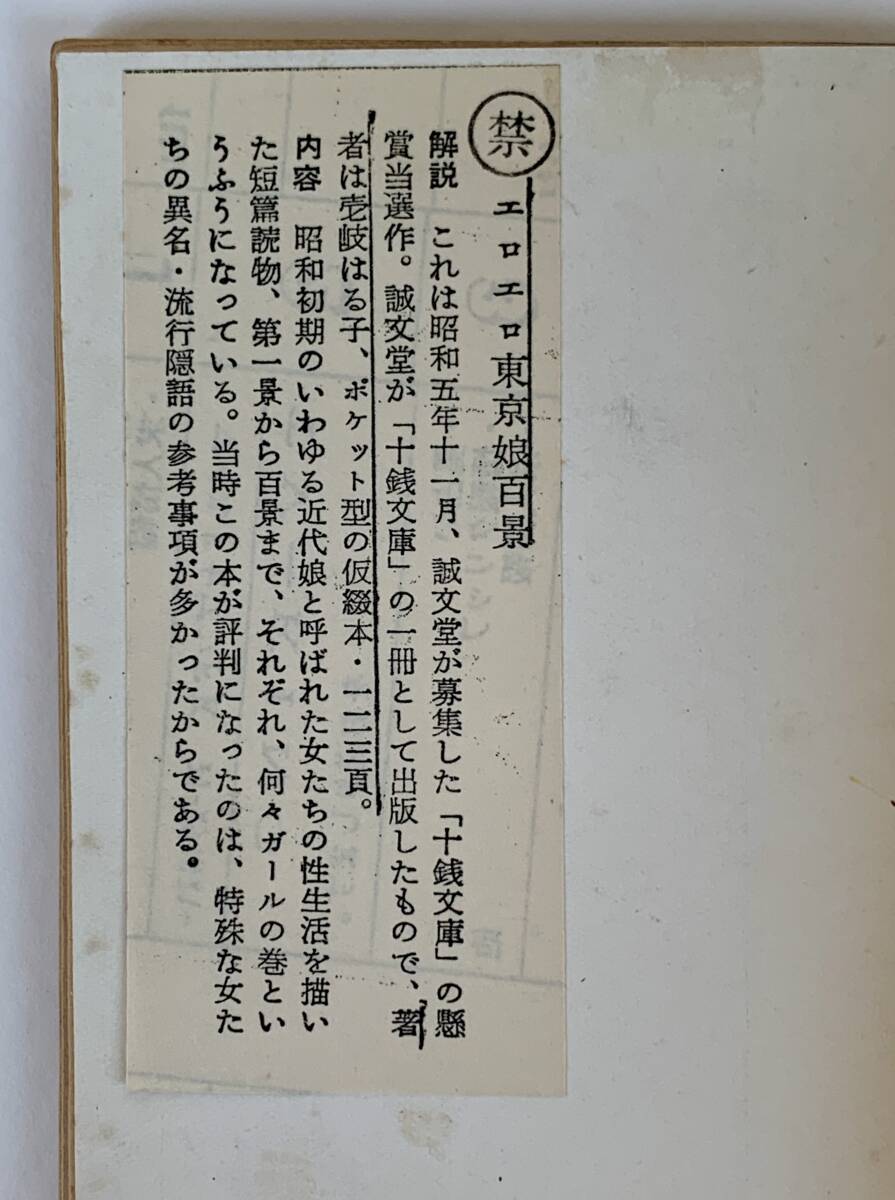 禁
エロエロ東京娘百景
解説 これは昭和五年十一月、誠文堂が募集した「十銭文庫」の懸
賞当選作。誠文堂が「十銭文庫」の一冊として出版したもので、著
者は壱岐はる子、ポケット型の仮綴本・一二三頁。
内容 昭和初期のいわゆる近代娘と呼ばれた女たちの性生活を描い
た短篇読物、第一景から百景まで、それぞれ、何々ガールの巻とい
うふうになっている。当時この本が評判になったのは、特殊な女た
ちの異名・流行隠語の参考事項が多かったからである。